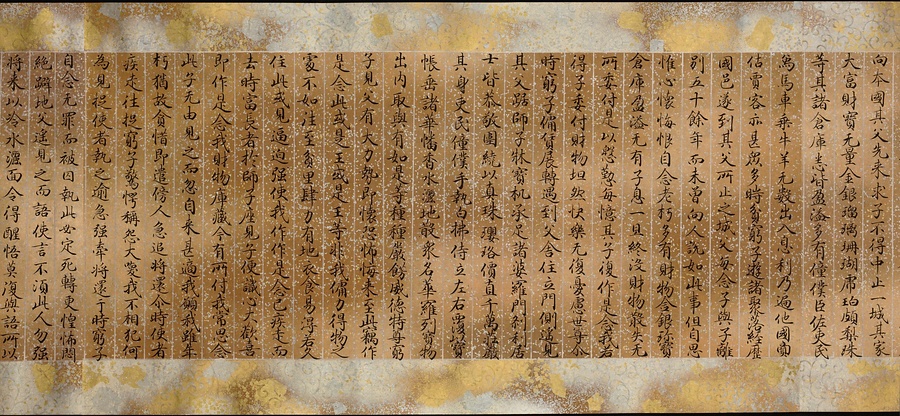 向本國其父先來求子不得中止一城其家
大富財寶无量金銀瑠璃珊瑚虎珀頗梨珠
等其諸倉庫悉皆盈溢多有僮僕臣佐吏民
象馬車乘牛羊无數出入息利乃遍他國商
估賈客亦甚眾多時貧窮子遊諸聚落經歷
國邑遂到其父所止之城父母念子與子離
別五十餘年而未曾向人說如此事但自思
惟心懷悔恨自念老朽多有財物金銀珍寶
倉庫盈溢无有子息一旦終沒財物散失无
所委付是以慇懃每憶其子復作是念我若
得子委付財物坦然快樂无復憂慮世尊尒
時窮子傭賃展轉遇到父舍住立門側遙見
其父踞師子牀寶机承足諸婆羅門剎利居
士皆恭敬圍繞以真珠瓔珞價直千萬莊嚴
其身吏民僮僕手執白拂侍立左右覆以寶
帳垂諸華幡香水灑地散眾名華羅列寶物
出內取與有如是等種種嚴飾威德特尊窮
子見父有大力勢即懷恐怖悔來至此竊作
是念此或是王或是王等非我傭力得物之
處不如往至貧里肆力有地衣食易得若久
住此或見逼迫強使我作作是念已疾走而
去時富長者於師子座見子便識心大歡喜
即作是念我財物庫藏今有所付我常思念
此子无由見之而忽自來甚適我願我雖年
朽猶故貪惜即遣傍人急追將還尒時使者
疾走往捉窮子驚愕稱怨大喚我不相犯何
為見捉使者執之逾急強牽將還于時窮子
自念无罪而被囚執此必定死轉更惶怖悶
絕躃地父遙見之而語使言不須此人勿強
將來以冷水灑面令得醒悟莫復與語所以